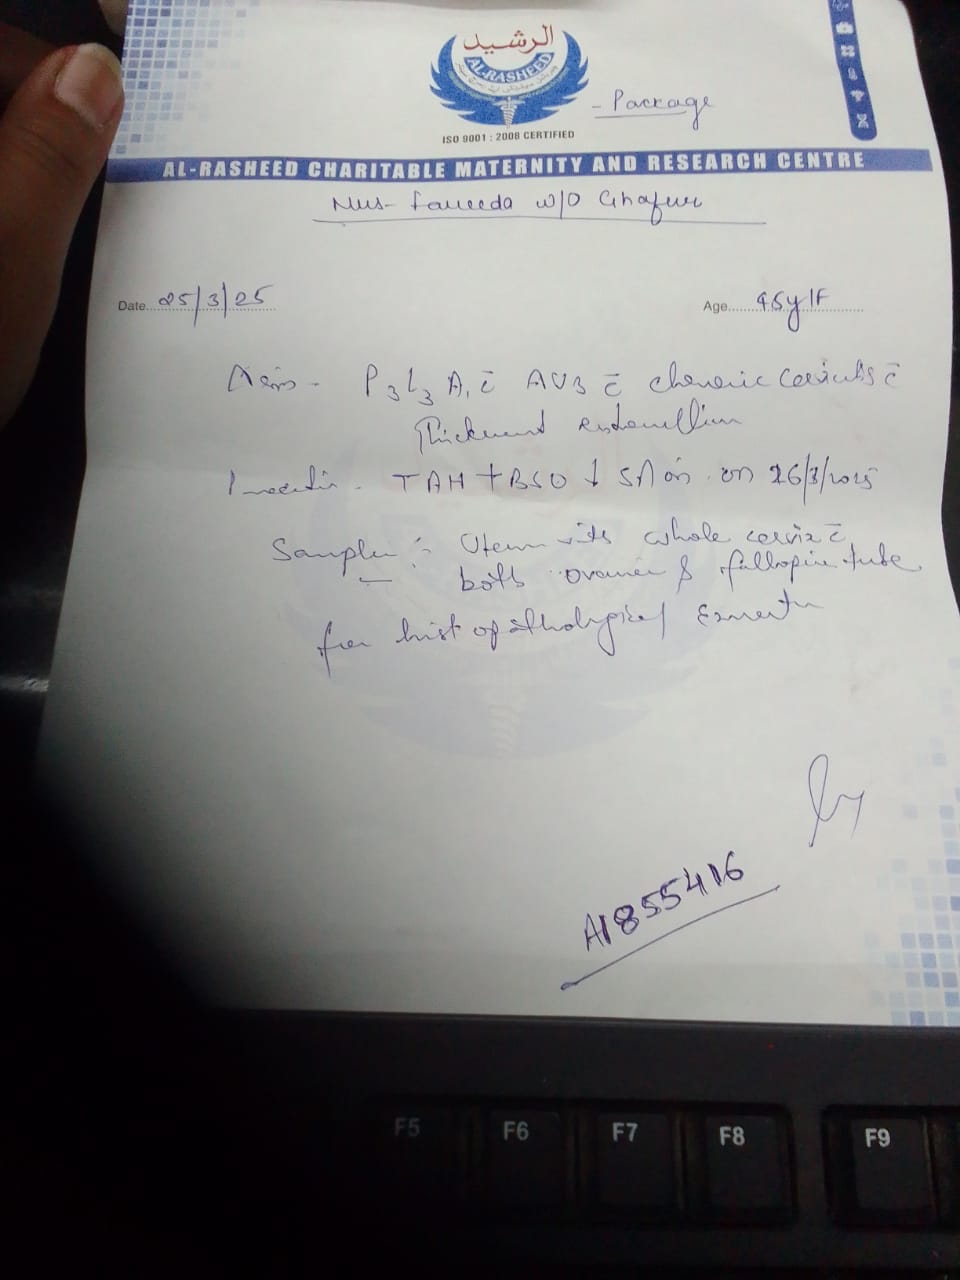 الرشيد
AL-RASHEED
ISO 9001 : 2008 CERTIFIED
- Package
AL-RASHEED CHARITABLE MATERNITY AND RESEARCH CENTRE
Mrs- Fareeda w/o Ghafur
Date 25/3/25
Age 45y/F
P3L3A1 c̄ AUB c̄ chronic cervicitis c̄
Thickened endometrium
TAH + BSO ↓ SA on 26/3/2025
Sample :- Uterus with whole cervix c̄
both ovaries & fallopian tube
for histopathological
A1855416
F5 F6 F7 F8 F9